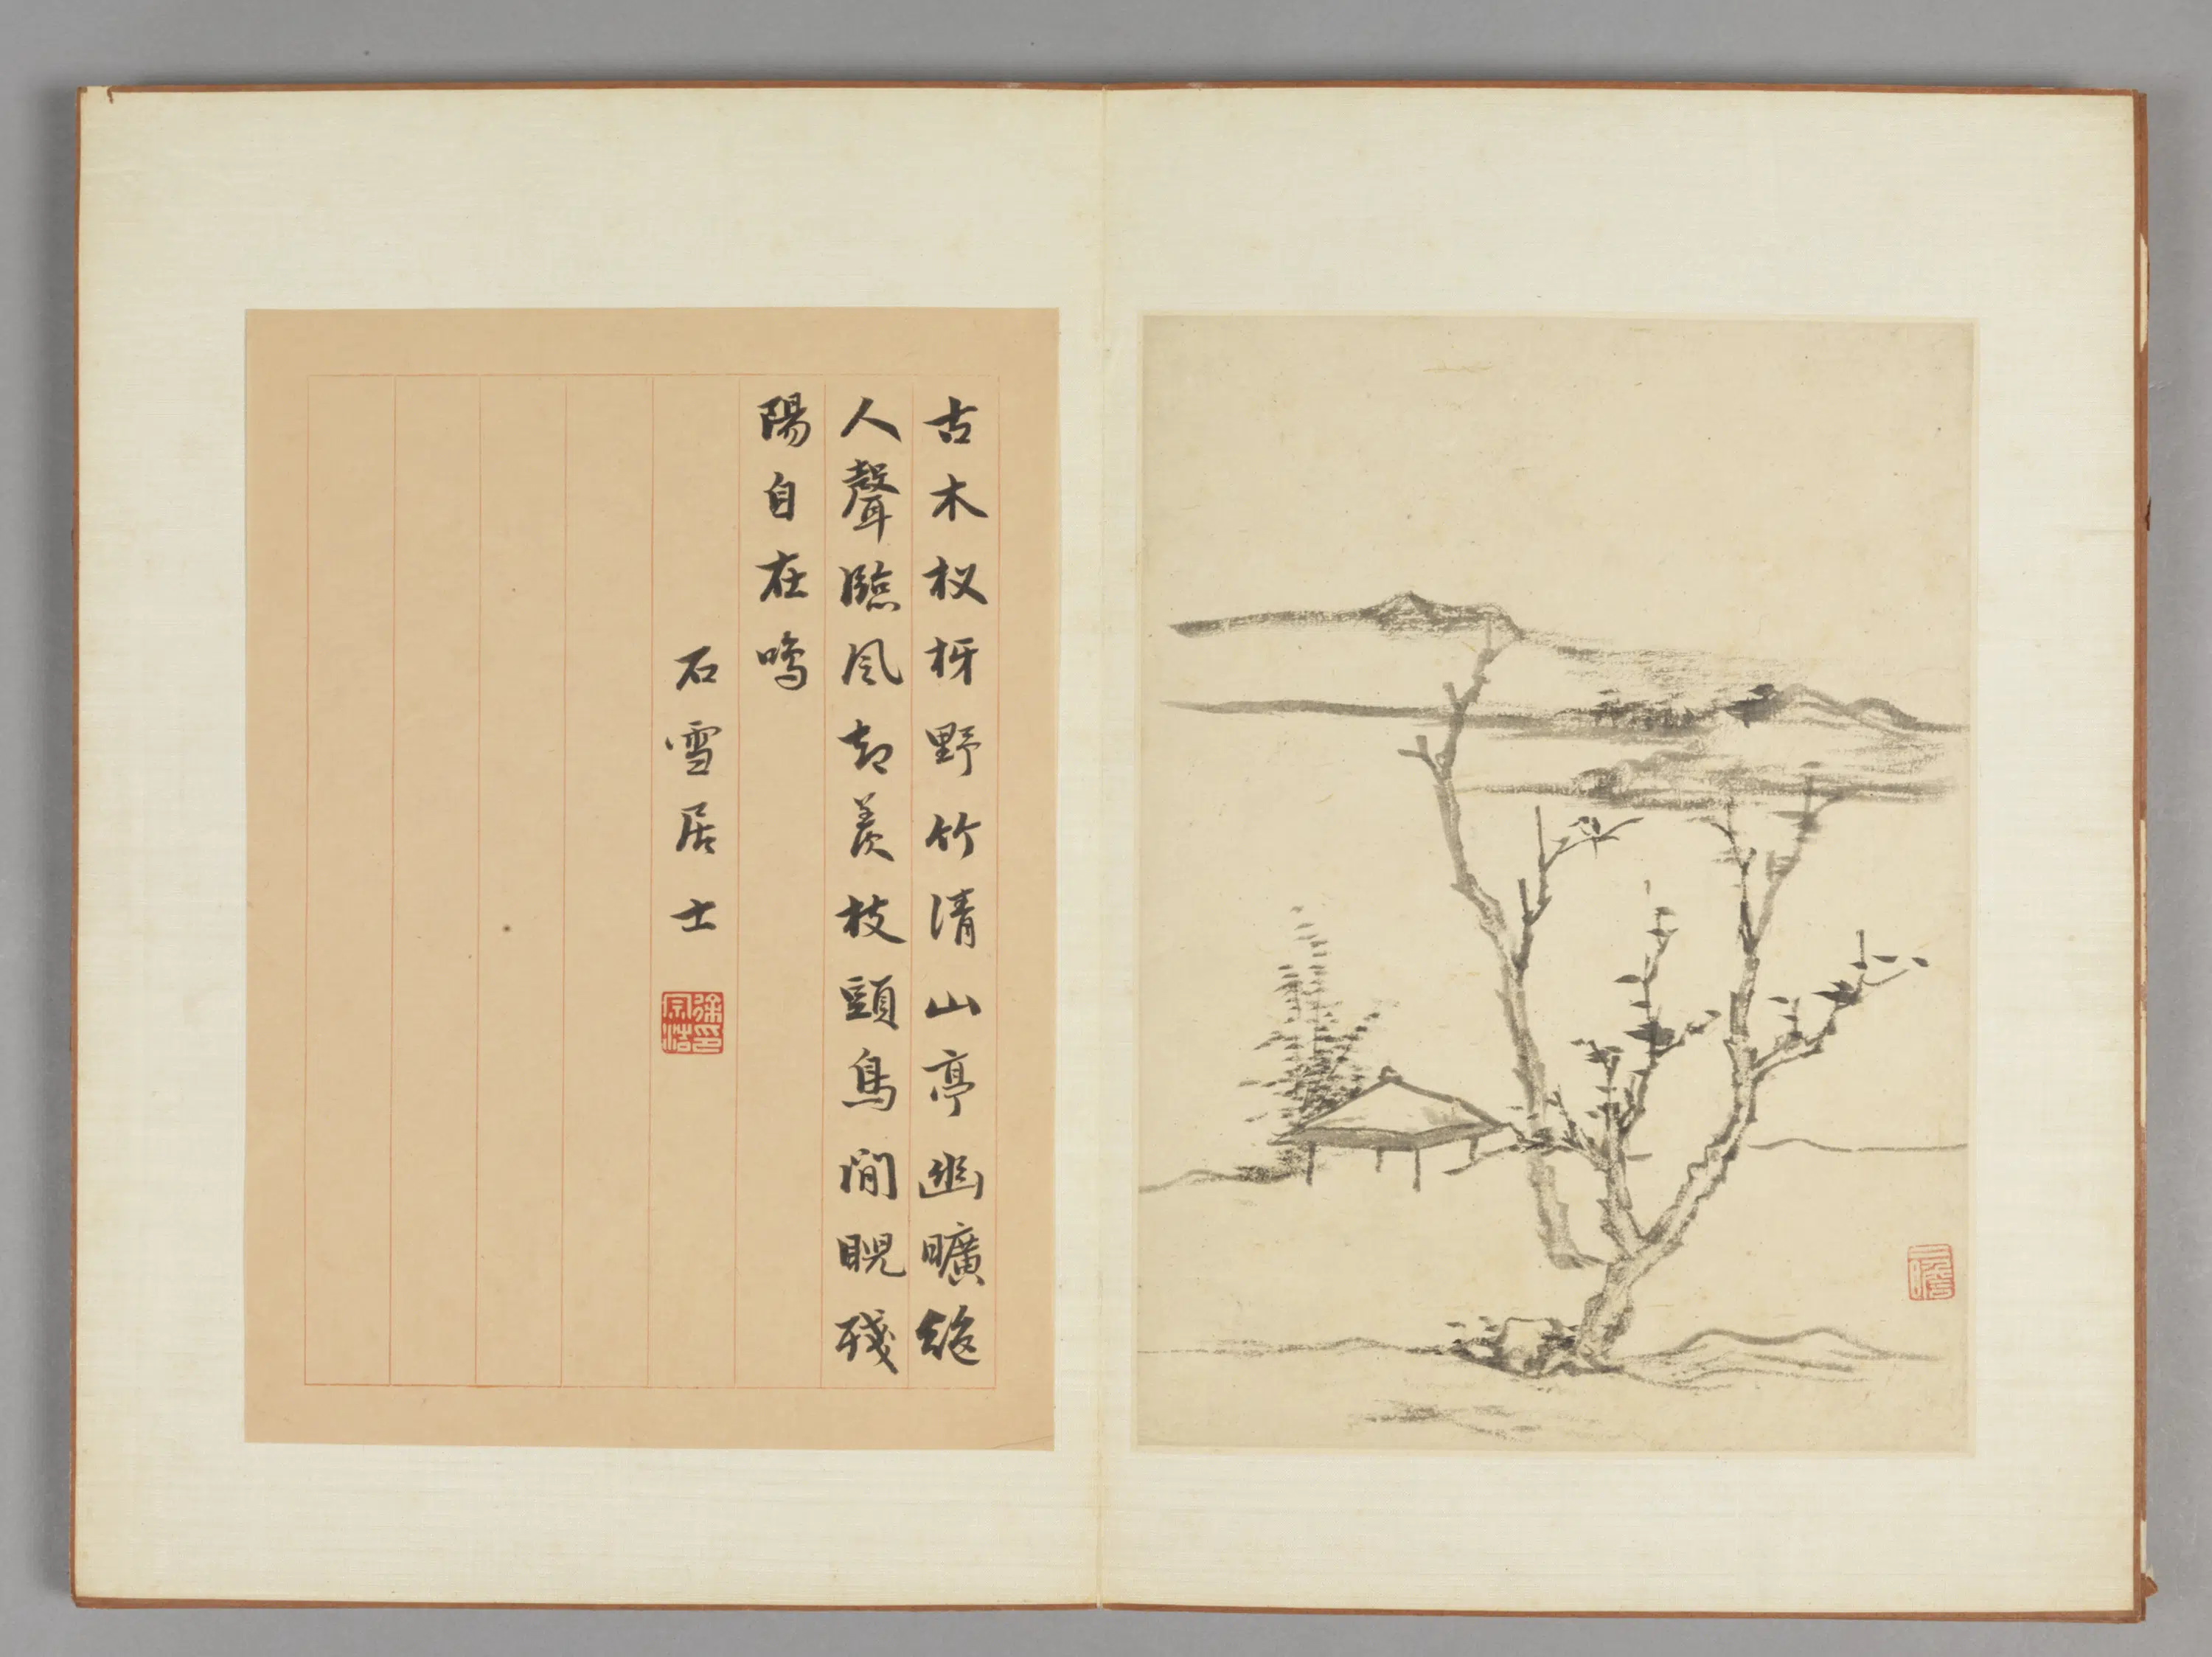 古木杈枒野竹清山亭幽曠絕
人聲臨風卻羨枝頭鳥閒睨殘
陽自在鳴
石雪居士
徐宗浩印